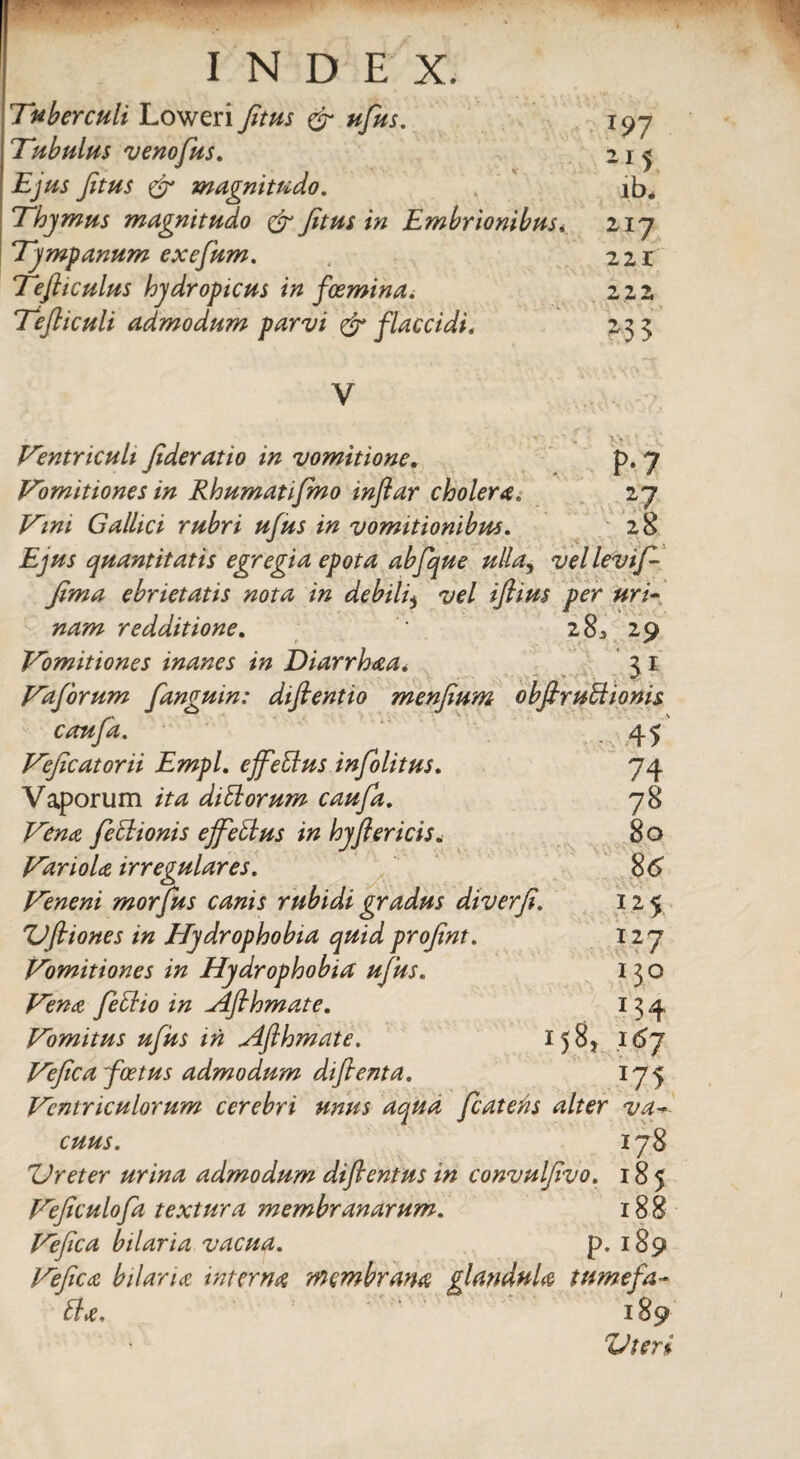 INDEX.
Tuberculi Loweri ſitus & uſus. 197
Tubulus venoſus. 215
Ejus ſitus & magnitudo. ib.
Thymus magnitudo & ſitus in Embrionibus. 217
Tympanum exeſum. 221
Teſticulus hydropicus in fœmina. 222
Teſticuli admodum parvi & flaccidi. 233
V
Ventriculi ſideratio in vomitione. p. 7
Vomitiones in Rhumatiſmo inſtar choleræ. 27
Vini Gallici rubri uſus in vomitionibus. 28
Ejus quantitatis egregia epota abſque ulla, vel leviſ-
ſima ebrietatis nota in debili, vel iſtius per uri-
nam redditione. 28, 29
Vomitiones inanes in Diarrhæa. 31
Vaſorum ſanguin: diſtentio menſium obſtructionis
cauſa. 45
Veſicatorii Empl. effectus inſolitus. 74
Vaporum ita dictorum cauſa. 78
Venæ ſectionis effectus in hyſtericis. 80
Variolæ irregulares. 86
Veneni morſus canis rubidi gradus diverſi. 125
Uſtiones in Hydrophobia quid proſint. 127
Vomitiones in Hydrophobia uſus. 130
Venæ ſectio in Aſthmate. 134
Vomitus uſus in Aſthmate. 158, 167
Veſica fœtus admodum diſtenta. 175
Ventriculorum cerebri unus aqua ſcatens alter va-
cuus. 178
Ureter urina admodum diſtentus in convulſivo. 185
Veſiculoſa textura membranarum. 188
Veſica bilaria vacua. p. 189
Veſicæ bilariæ internæ membranæ glandulæ tumefa-
ctæ. 189
Uteri